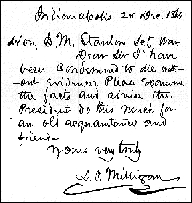 Indianapolis 28 Dec. 1864
Hon. E M. Stanton Sec War
Dear Sir I have
been condemned to die with-
out evidence Please examine
the facts and advise the
President do this much for
an old acquaintance and
friend
Yours very truly
L. P. Milligan